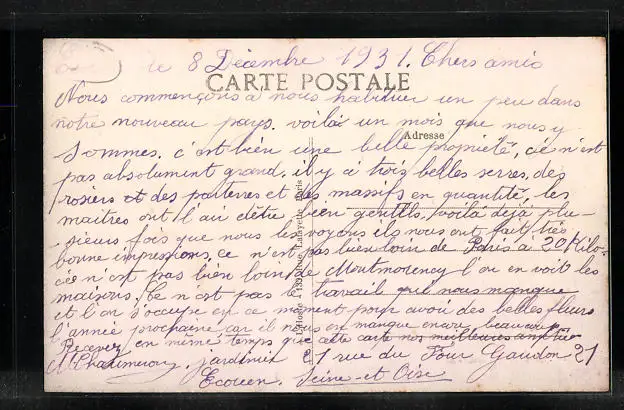 le 8 Décembre 1931. Chers amis
CARTE POSTALE
Nous commençons à nous habituer un peu dans
notre nouveau pays. voilà un mois que nous y
Adresse
sommes, c'est bien une belle propriété, ce n'est
pas absolument grand, il y a trois belles serres, des
rosiers et des parterres et des massifs en quantité, les
maitres ont l'air d'être bien gentils. voilà déjà plu-
-sieurs fois que nous les voyons ils nous ont fait très
bonne impressions, ce n'est pas bien loin de Paris à 20 Kilo-
ce n'est pas bien loin de Montmorency l'on en voit les
maisons. Ce n'est pas le travail qui nous manque
et l'on s'occupe en ce moment pour avoir des belles fleurs
l'année prochaine car il nous en manque encore beaucoup
Recevez en même temps que cette carte nos meilleures amitiés
jardinier 21 rue du Four Gaudon 21
Ecouen. Seine-et-Oise
Rue Lafayette, Paris